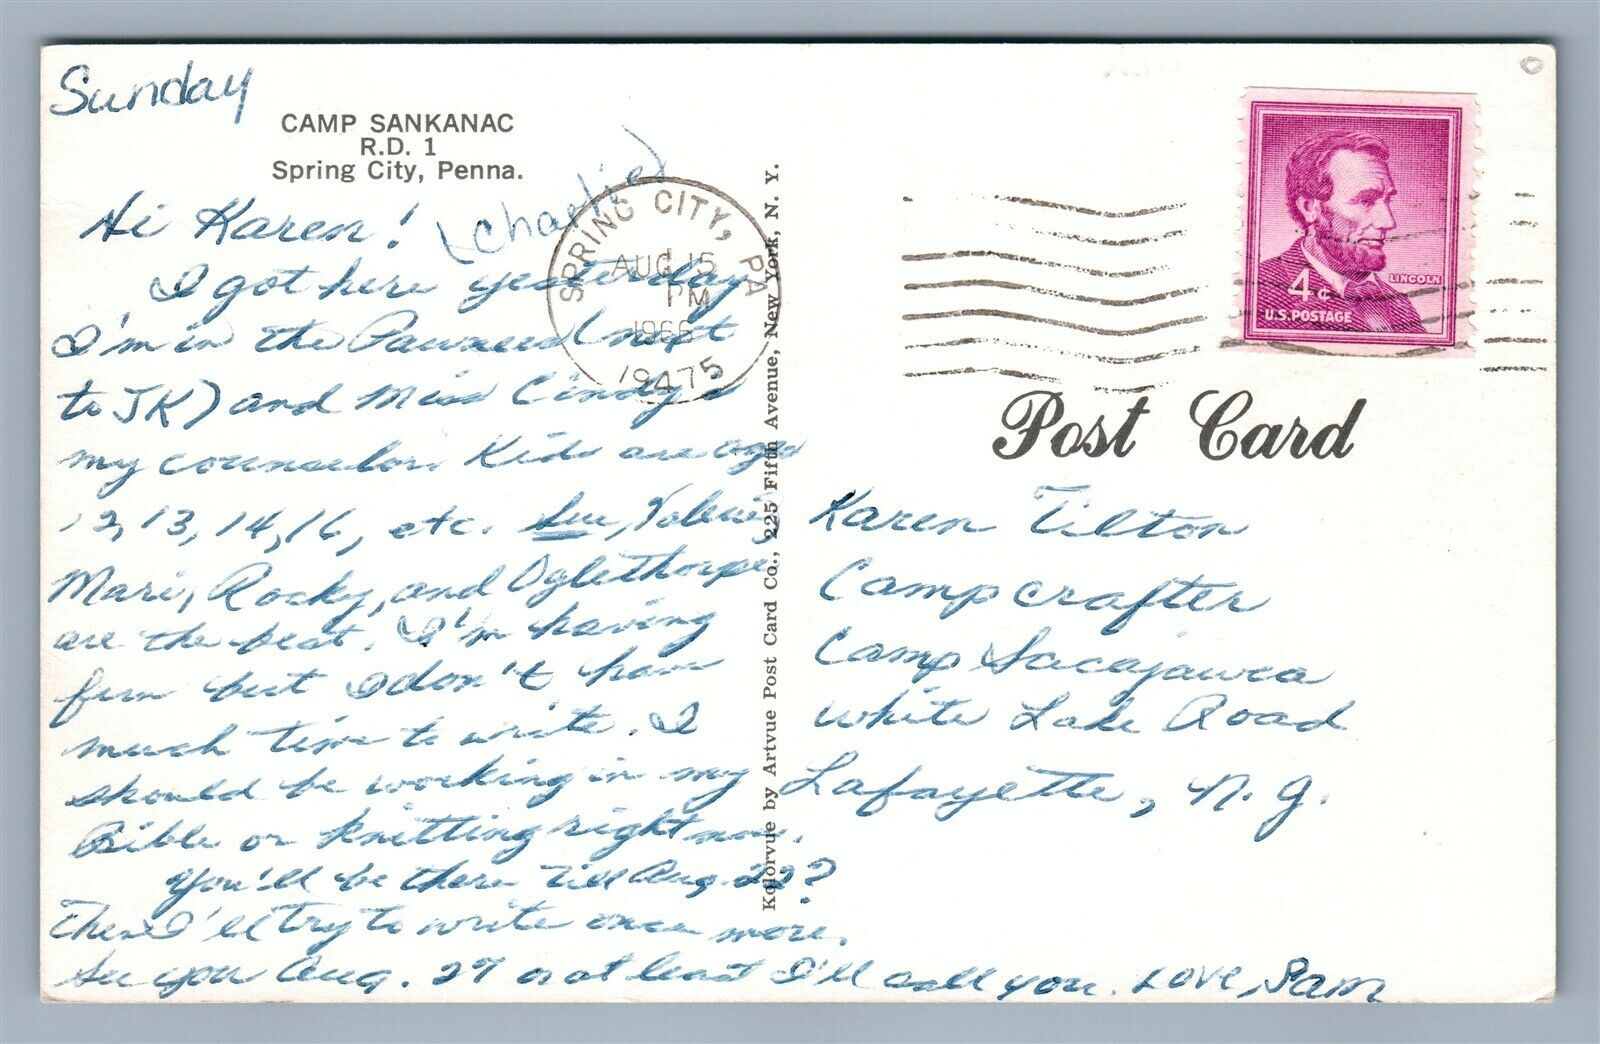 Sunday
CAMP SANKANAC
R.D. 1
Spring City, Penna.
Hi Karen! (Charlie)
I got here yesterday
I'm in the Pawnees (next
to JK) and Miss Cindy's
my counselor. Kids are age
12, 13, 14, 16, etc. Sue, Valerie,
Mari, Rocky, and Oglethorpe
are the best. I'm having
fun but I don't have
much time to write. I
should be working in my
Bible or knitting right now.
You'll be there till Aug. 22?
Then I'll try to write once more.
See you Aug. 27 or at least I'll call you. Love, Pam
SPRING CITY, PA
AUG 15
PM
1966
19475
Kolorvue by Artvue Post Card Co., 225 Fifth Avenue, New York, N. Y.
4¢
LINCOLN
U.S. POSTAGE
Post Card
Karen Tilton
Campcrafter
Camp Sacajawea
White Lake Road
Lafayette, N. J.